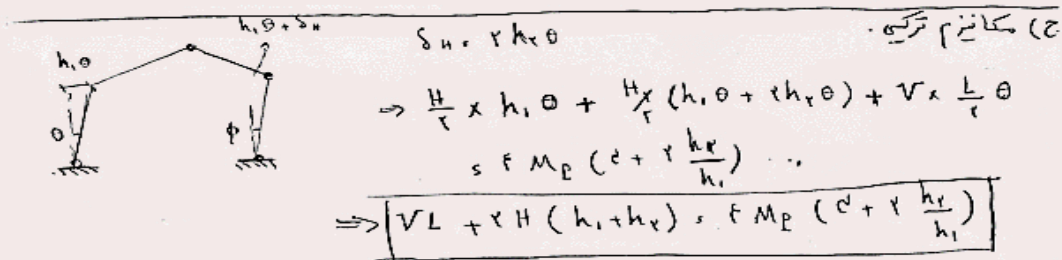 ج) مکانیزم ترکیبی.
h₁θ
h₁θ + δH
θ
φ
δH = ۲h₂θ
⇒ H/۲ × h₁θ + H/۲ × (h₁θ + ۲h₂θ) + V × L/۲ θ
= ۴ M_P (۵ + ۲ h₂/h₁) ...
⇒ VL + ۲H (h₁ + h₂) = ۴ M_P (۵ + ۲ h₂/h₁)